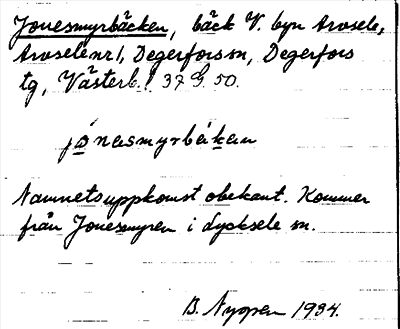 Jonesmyrbäcken, bäck V. byn Arvsele,
Arvsele nr 1, Degerfors sn, Degerfors
tg, Västerb. l. 37 G. 50.
jo̱nasmyrbäkan
Namnets uppkomst obekant. Kommer
från Jonesmyren i Lycksele sn.
B. Nygren 1934.